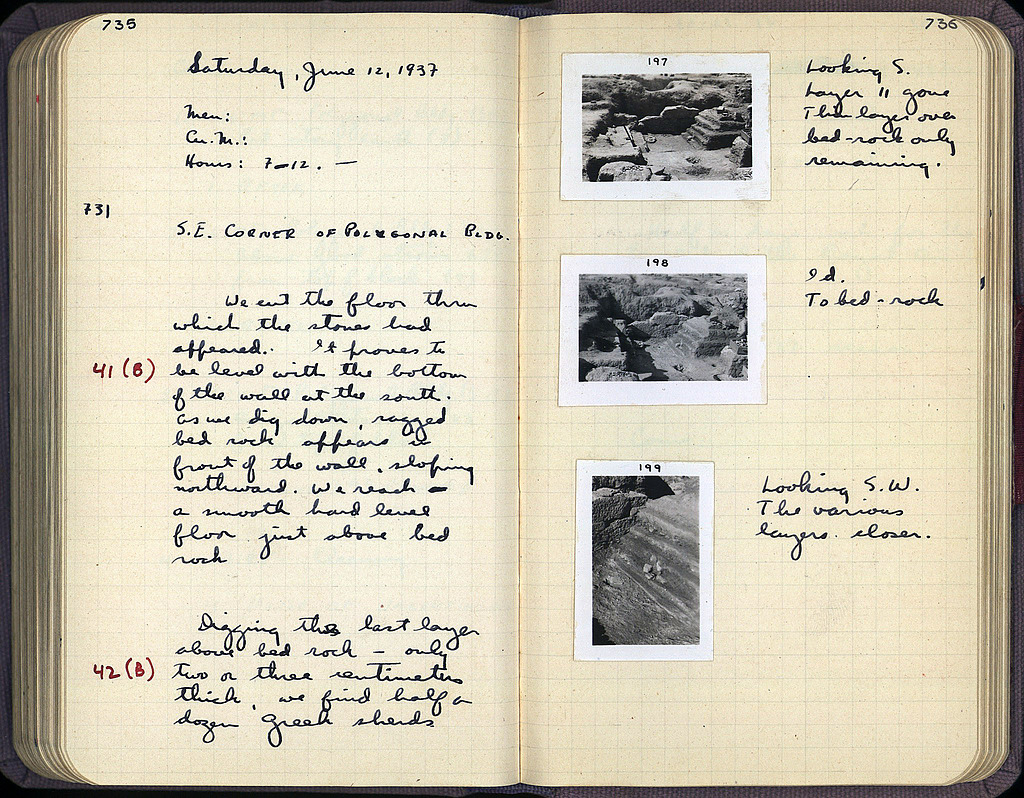 735
Saturday, June 12, 1937
Men:
Cu. M.:
Hours: 7-12. —
731
S.E. CORNER OF POLYGONAL BLDG.
We cut the floor thru
which the stones had
appeared. It proves to
41 (B) be level with the bottom
of the wall at the south.
As we dig down, ragged
bed rock appears in
front of the wall, sloping
northward. We reach –
a smooth hard level
floor just above bed
rock
Digging this last layer
above bed rock – only
42 (B) two or three centimeters
thick, we find half a
dozen Greek sherds
736
197
Looking S.
Layer 11 gone
Thin layer over
bed-rock only
remaining.
198
Id.
To bed-rock
199
Looking S.W.
The various
layers. closer.